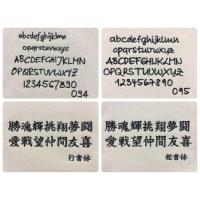 abcdefghijklmn
opqrstuvwxyz
ABCDEFGHIJKLMN
OPQRSTUVWXYZ
1234567890
094
abcdefghijklmn
opqrstuvwxyz
ABCDEFGHIJKLMN
OPQRSTUVWXYZ
1234567890
095
勝魂輝挑翔夢闘
愛戦望仲間友喜
行書体
勝魂輝挑翔夢闘
愛戦望仲間友喜
楷書体